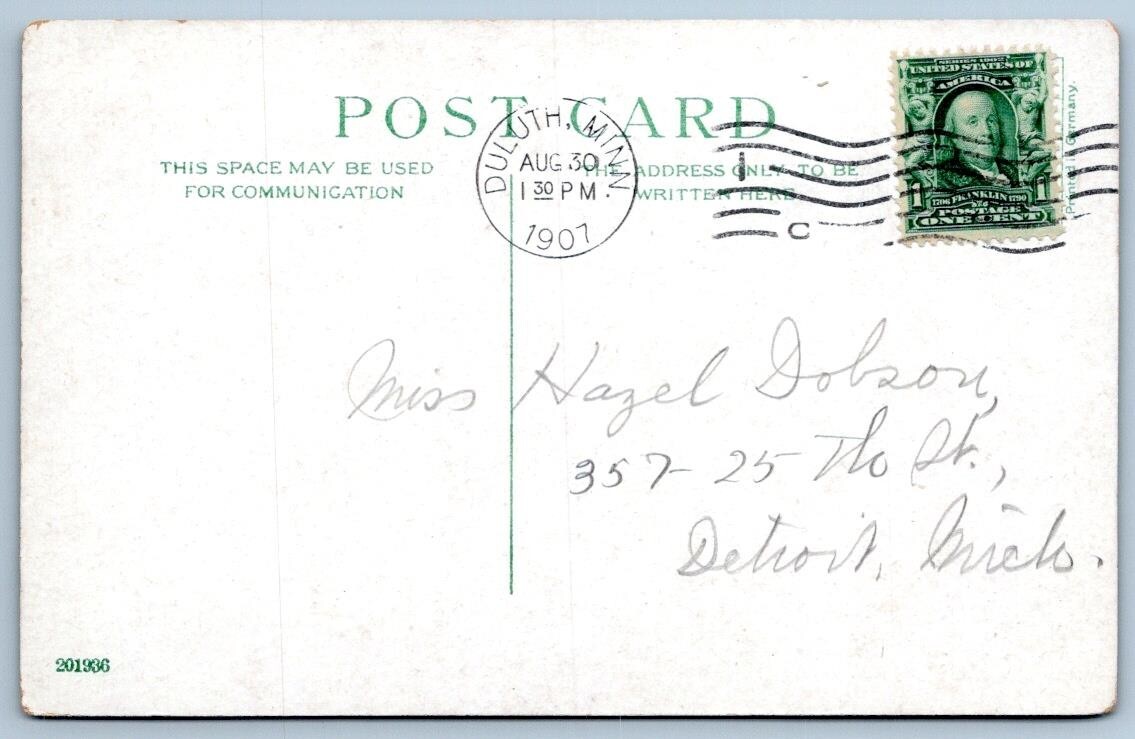 POST CARD
THIS SPACE MAY BE USED
FOR COMMUNICATION
THE ADDRESS ONLY TO BE
WRITTEN HERE
DULUTH, MINN.
AUG 30
1 30 PM
1907
C
SERIES 1902
UNITED STATES OF
AMERICA
1 1
1706 FRANKLIN 1790
POSTAGE
ONE CENT
Printed in Germany.
Miss Hazel Dobson,
357- 25 Th St.,
Detroit, Mich.
201936